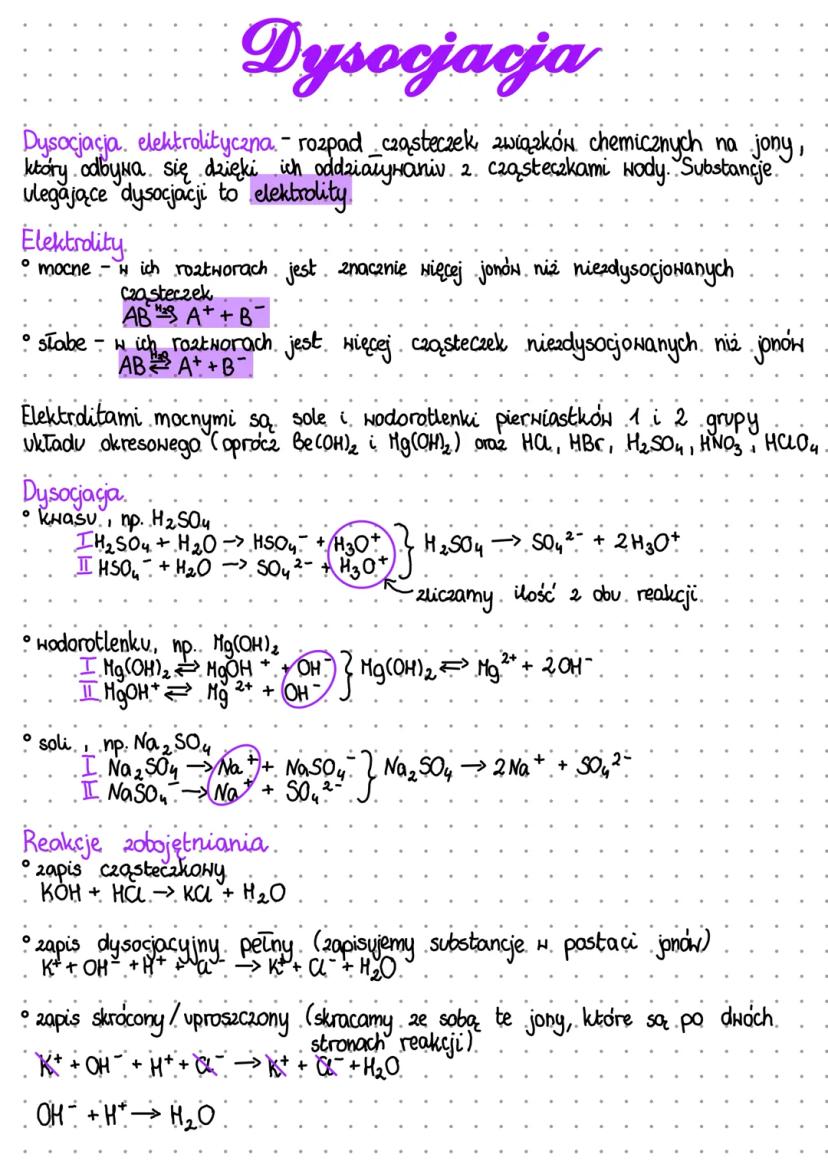 Dysocjacja
Dysocjacja elektrolityczna - rozpad cząsteczek związków chemicznych na jony,
który odbywa się dzięki ich oddziaływaniu z cząsteczkami wody. Substancje
ulegające dysocjacji to elektrolity
Elektrolity
° mocne - w ich roztworach jest znacznie więcej jonów niż niezdysocjowanych
cząsteczek
AB H₂O⇒ A⁺ + B⁻
° słabe - w ich roztworach jest więcej cząsteczek niezdysocjowanych niż jonów
AB H₂O⇄ A⁺ + B⁻
Elektrolitami mocnymi są sole i wodorotlenki pierwiastków 1 i 2 grupy
układu okresowego (oprócz Be(OH)₂ i Mg(OH)₂) oraz HCl, HBr, H₂SO₄, HNO₃, HClO₄
Dysocjacja
° kwasu, np. H₂SO₄
I H₂SO₄ + H₂O → HSO₄⁻ + H₃O⁺ } H₂SO₄ → SO₄²⁻ + 2H₃O⁺
II HSO₄⁻ + H₂O → SO₄²⁻ + H₃O⁺
zliczamy ilość z obu reakcji
° wodorotlenku, np. Mg(OH)₂
I Mg(OH)₂ ⇄ MgOH⁺ + OH⁻ } Mg(OH)₂ ⇄ Mg²⁺ + 2OH⁻
II MgOH⁺ ⇄ Mg²⁺ + OH⁻
° soli, np. Na₂SO₄
I Na₂SO₄ → Na⁺ + NaSO₄⁻ } Na₂SO₄ → 2Na⁺ + SO₄²⁻
II NaSO₄⁻ → Na⁺ + SO₄²⁻
Reakcje zobojętniania
° zapis cząsteczkowy
KOH + HCl → KCl + H₂O
° zapis dysocjacyjny pełny (zapisujemy substancje w postaci jonów)
K⁺ + OH⁻ + H⁺ + Cl⁻ → K⁺ + Cl⁻ + H₂O
° zapis skrócony / uproszczony (skracamy ze sobą te jony, które są po dwóch
stronach reakcji)
K⁺ + OH⁻ + H⁺ + Cl⁻ → K⁺ + Cl⁻ + H₂O
OH⁻ + H⁺ → H₂O